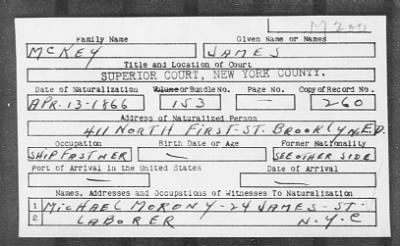 M200
Family Name Given Name or Names
McKEY JAMES
Title and Location of Court
SUPERIOR COURT, NEW YORK COUNTY.
Date of Naturalization Volume or Bundle No. Page No. Copy of Record No.
APR. 13-1866 153 — 260
Address of Naturalized Person
411 NORTH FIRST-ST. BROOKLYN E.D.
Occupation Birth Date or Age Former Nationality
SHIP FASTNER — SEE OTHER SIDE
Port of Arrival in the United States Date of Arrival
— —
Names, Addresses and Occupations of Witnesses To Naturalization
1 MICHAEL MORONY-24 JAMES-ST.
2 LABORER N.Y.C